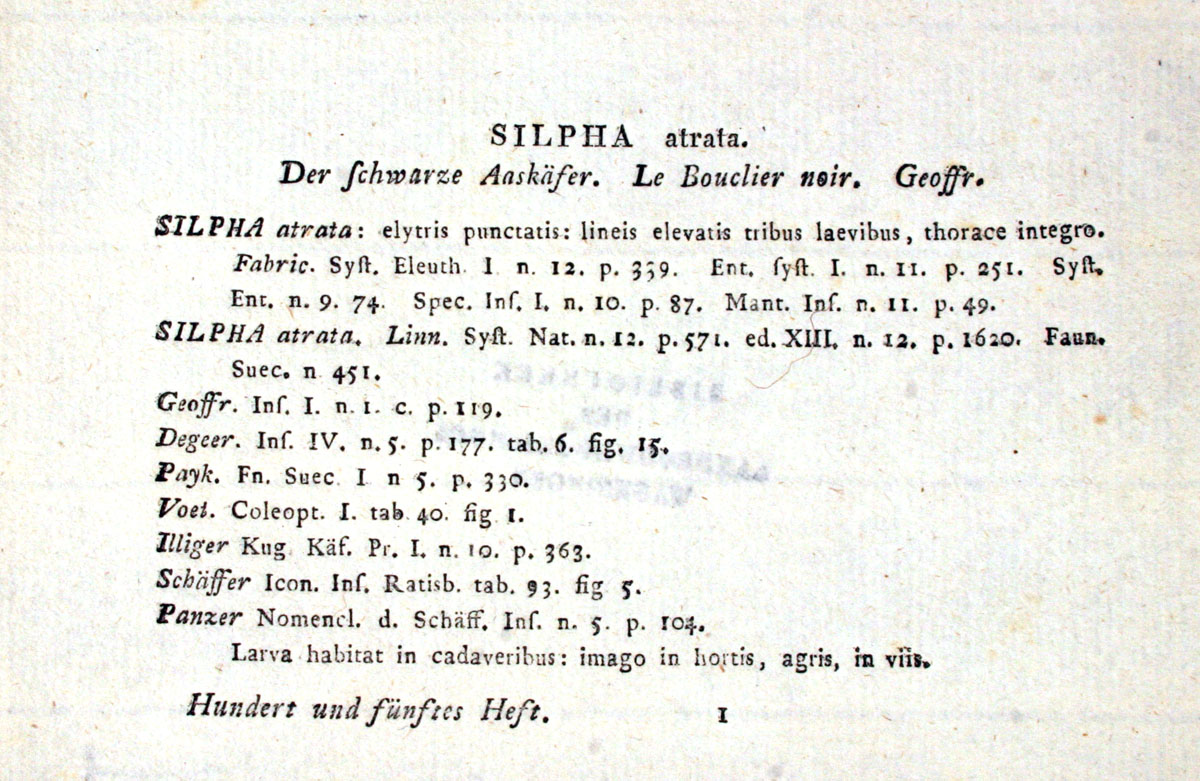 SILPHA atrata.
Der ſchwarze Aaskäfer. Le Bouclier noir. Geoffr.
SILPHA atrata: elytris punctatis: lineis elevatis tribus laevibus, thorace integro.
Fabric. Syſt. Eleuth. I n. 12. p. 359. Ent. ſyſt. I. n. 11. p. 251. Syſt.
Ent. n. 9. 74. Spec. Inſ. I. n. 10. p. 87. Mant. Inſ. n. 11. p. 49.
SILPHA atrata. Linn. Syſt. Nat. n. 12. p. 571. ed. XIII. n. 12. p. 1620. Faun.
Suec. n 451.
Geoffr. Inſ. I. n. 1. c. p. 119.
Degeer. Inſ. IV. n. 5. p. 177. tab. 6. fig. 15.
Payk. Fn. Suec. I n 5. p. 330.
Voet. Coleopt. I. tab 40. fig 1.
Illiger Kug. Käf. Pr. I. n. 10. p. 363.
Schäffer Icon. Inſ. Ratisb. tab. 93. fig 5.
Panzer Nomencl. d. Schäff. Inſ. n. 5. p. 104.
Larva habitat in cadaveribus: imago in hortis, agris, in viis.
Hundert und fünftes Heft. 1
BIBLIOTHEEK
DER